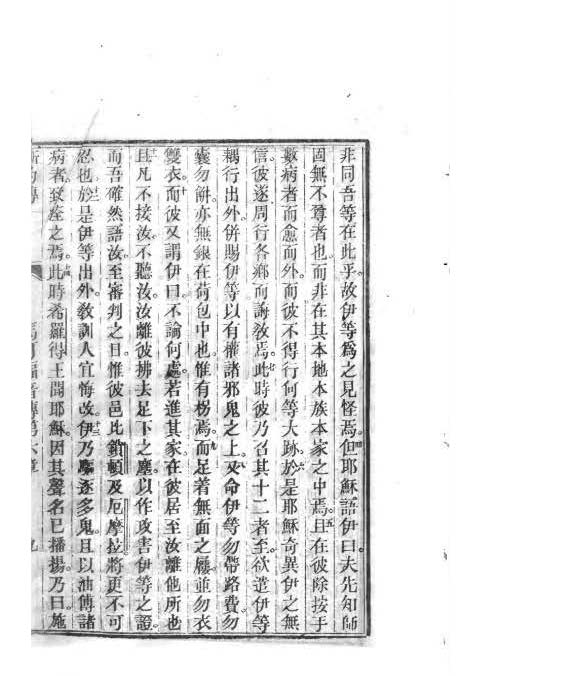 非同吾等在此乎。故伊等為之見怪焉。四但耶穌語伊曰。夫先知師
固無不尊者也。而非在其本地本族本家之中焉。五且在彼除按手
數病者而愈而外。而彼不得行何等大跡。六於是耶穌奇異伊之無
信。彼遂周行各鄉而誨教焉。七此時彼乃召其十二者至。欲遣伊等
耦行出外。併賜伊等以有權諸邪鬼之上。八又命伊等勿帶路費。勿
囊勿餅。亦無銀在荷包中也。惟有柺焉。九而足着無面之屨。並勿衣
雙衣。十而彼又謂伊曰。不論何處。若進其家。在彼居至汝離他所也
十一且凡不接汝。不聽汝。汝離彼拂去足下之塵。以作攻害伊等之證。
而吾確然語汝。至審判之日。惟彼邑比鎖頓及厄摩拉將更不可
忍也。十二於是伊等出外。教訓人宜悔改。十三伊乃驅逐多鬼。且以油傅諸
病者。致痊之焉。十四此時希羅得王聞耶穌。因其聲名已播揚。乃曰。施
馬可福音傳第六章 九